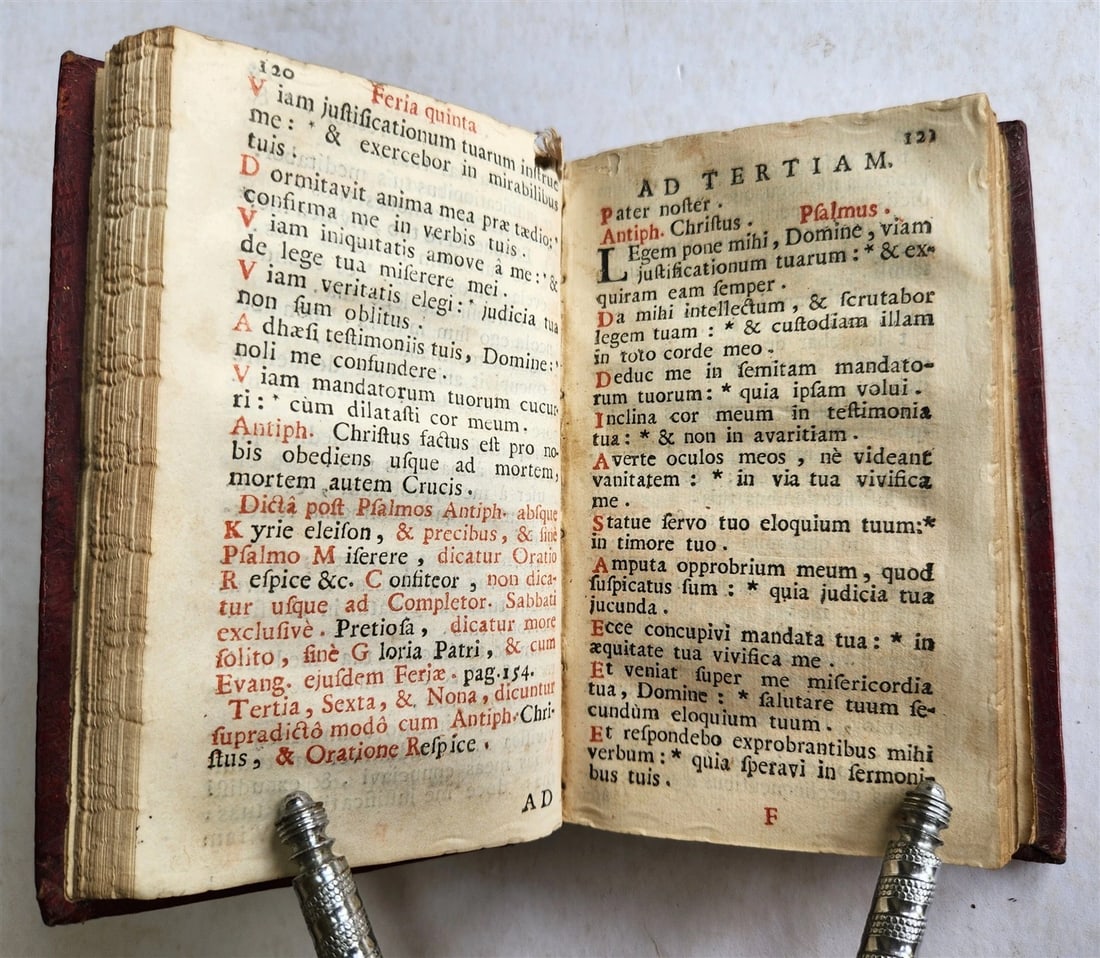 120
Feria quinta
Viam juſtificationum tuarum inſtrue
me : * & exercebor in mirabilibus
tuis .
Dormitavit anima mea præ tædio : *
confirma me in verbis tuis .
Viam iniquitatis amove â me : * &
de lege tua miſerere mei .
Viam veritatis elegi : * judicia tua
non ſum oblitus .
Adhæſi teſtimoniis tuis, Domine : *
noli me confundere .
Viam mandatorum tuorum cucur-
ri : * cùm dilataſti cor meum .
Antiph. Chriſtus factus eſt pro no-
bis obediens uſque ad mortem,
mortem autem Crucis .
Dictâ poſt Pſalmos Antiph. abſque
Kyrie eleiſon, & precibus, & ſinè
Pſalmo Miſerere , dicatur Oratio
Reſpice &c. Confiteor , non dica-
tur uſque ad Completor. Sabbati
excluſivè . Pretioſa , dicatur more
ſolito , ſinè Gloria Patri , & cum
Evang. ejuſdem Feriæ . pag.154.
Tertia, Sexta, & Nona, dicuntur
ſupradictô modô cum Antiph. Chri-
ſtus , & Oratione Reſpice .
AD
121
AD TERTIAM.
Pater noſter .
Antiph. Chriſtus . Pſalmus .
LEgem pone mihi, Domine , viam
juſtificationum tuarum : * & ex-
quiram eam ſemper .
Da mihi intellectum , & ſcrutabor
legem tuam : * & cuſtodiam illam
in toto corde meo .
Deduc me in ſemitam mandato-
rum tuorum : * quia ipſam volui .
Inclina cor meum in teſtimonia
tua : * & non in avaritiam .
Averte oculos meos , nè videant
vanitatem : * in via tua vivifica
me .
Statue ſervo tuo eloquium tuum:*
in timore tuo .
Amputa opprobrium meum, quod
ſuſpicatus ſum : * quia judicia tua
jucunda .
Ecce concupivi mandata tua : * in
æquitate tua vivifica me .
Et veniat ſuper me miſericordia
tua, Domine : * ſalutare tuum ſe-
cundùm eloquium tuum .
Et reſpondebo exprobrantibus mihi
verbum : * quia ſperavi in ſermoni-
bus tuis .
F